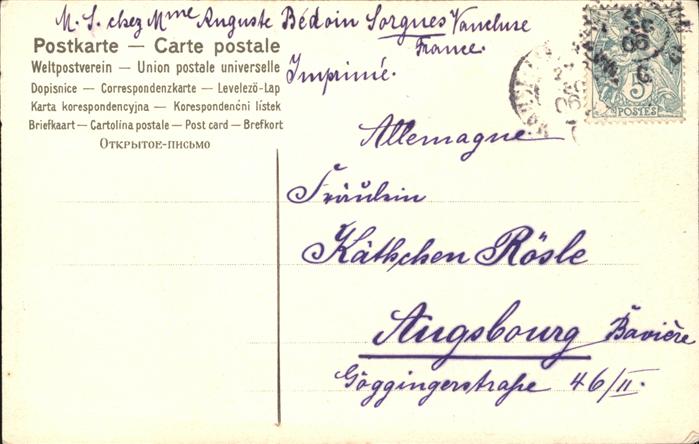 M. S. chez Mme Auguste Bédoin Sorgues Vaucluse
France.
Imprimé.
Postkarte — Carte postale
Weltpostverein — Union postale universelle
Dopisnice — Correspondenzkarte — Levelező-Lap
Karta korespondencyjna — Korespondenční lístek
Briefkaart — Cartolina postale — Post card — Brefkort
Открытое-письмо
5
POSTES
Allemagne.
Fräulein
Käthchen Rösle
Augsbourg Bavière
Göggingerstraße 46/II.